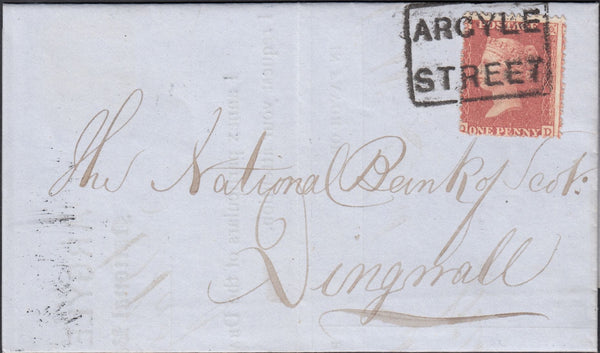 ARGYLE
STREET
POSTAGE
ONE PENNY D
The National Bank of Scot:
Dingwall